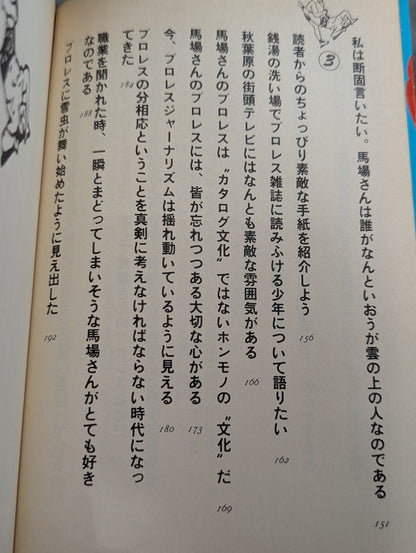 私は断固言いたい。馬場さんは誰がなんといおうが雲の上の人なのである 151
3
読者からのちょっぴり素敵な手紙を紹介しよう 156
銭湯の洗い場でプロレス雑誌に読みふける少年について語りたい 162
秋葉原の街頭テレビにはなんとも素敵な雰囲気がある 166
馬場さんのプロレスは〝カタログ文化〟ではないホンモノの〝文化〟だ 169
馬場さんのプロレスには、皆が忘れつつある大切な心がある 173
今、プロレスジャーナリズムは揺れ動いているように見える 180
プロレスの分相応ということを真剣に考えなければならない時代になっ
てきた 184
職業を聞かれた時、一瞬とまどってしまいそうな馬場さんがとても好き
なのである 188
プロレスに雪虫が舞い始めたように見え出した 192